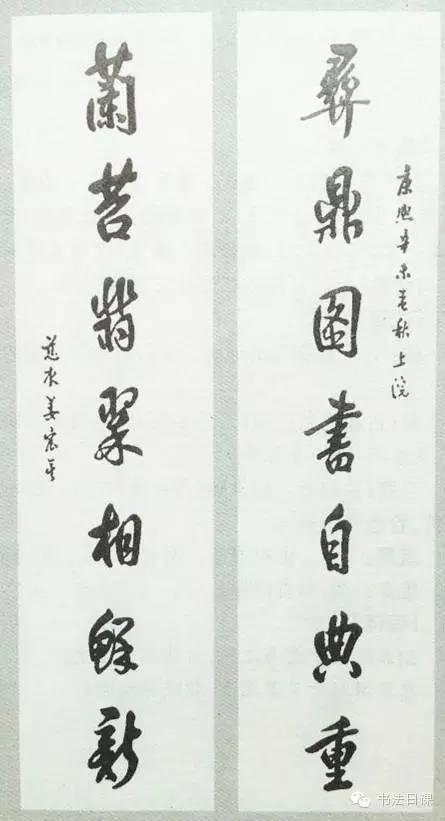 康熙辛未秋上浣
彝鼎圖書自典重
蘭苕翡翠相鮮新
慈水姜宸英
书法日课